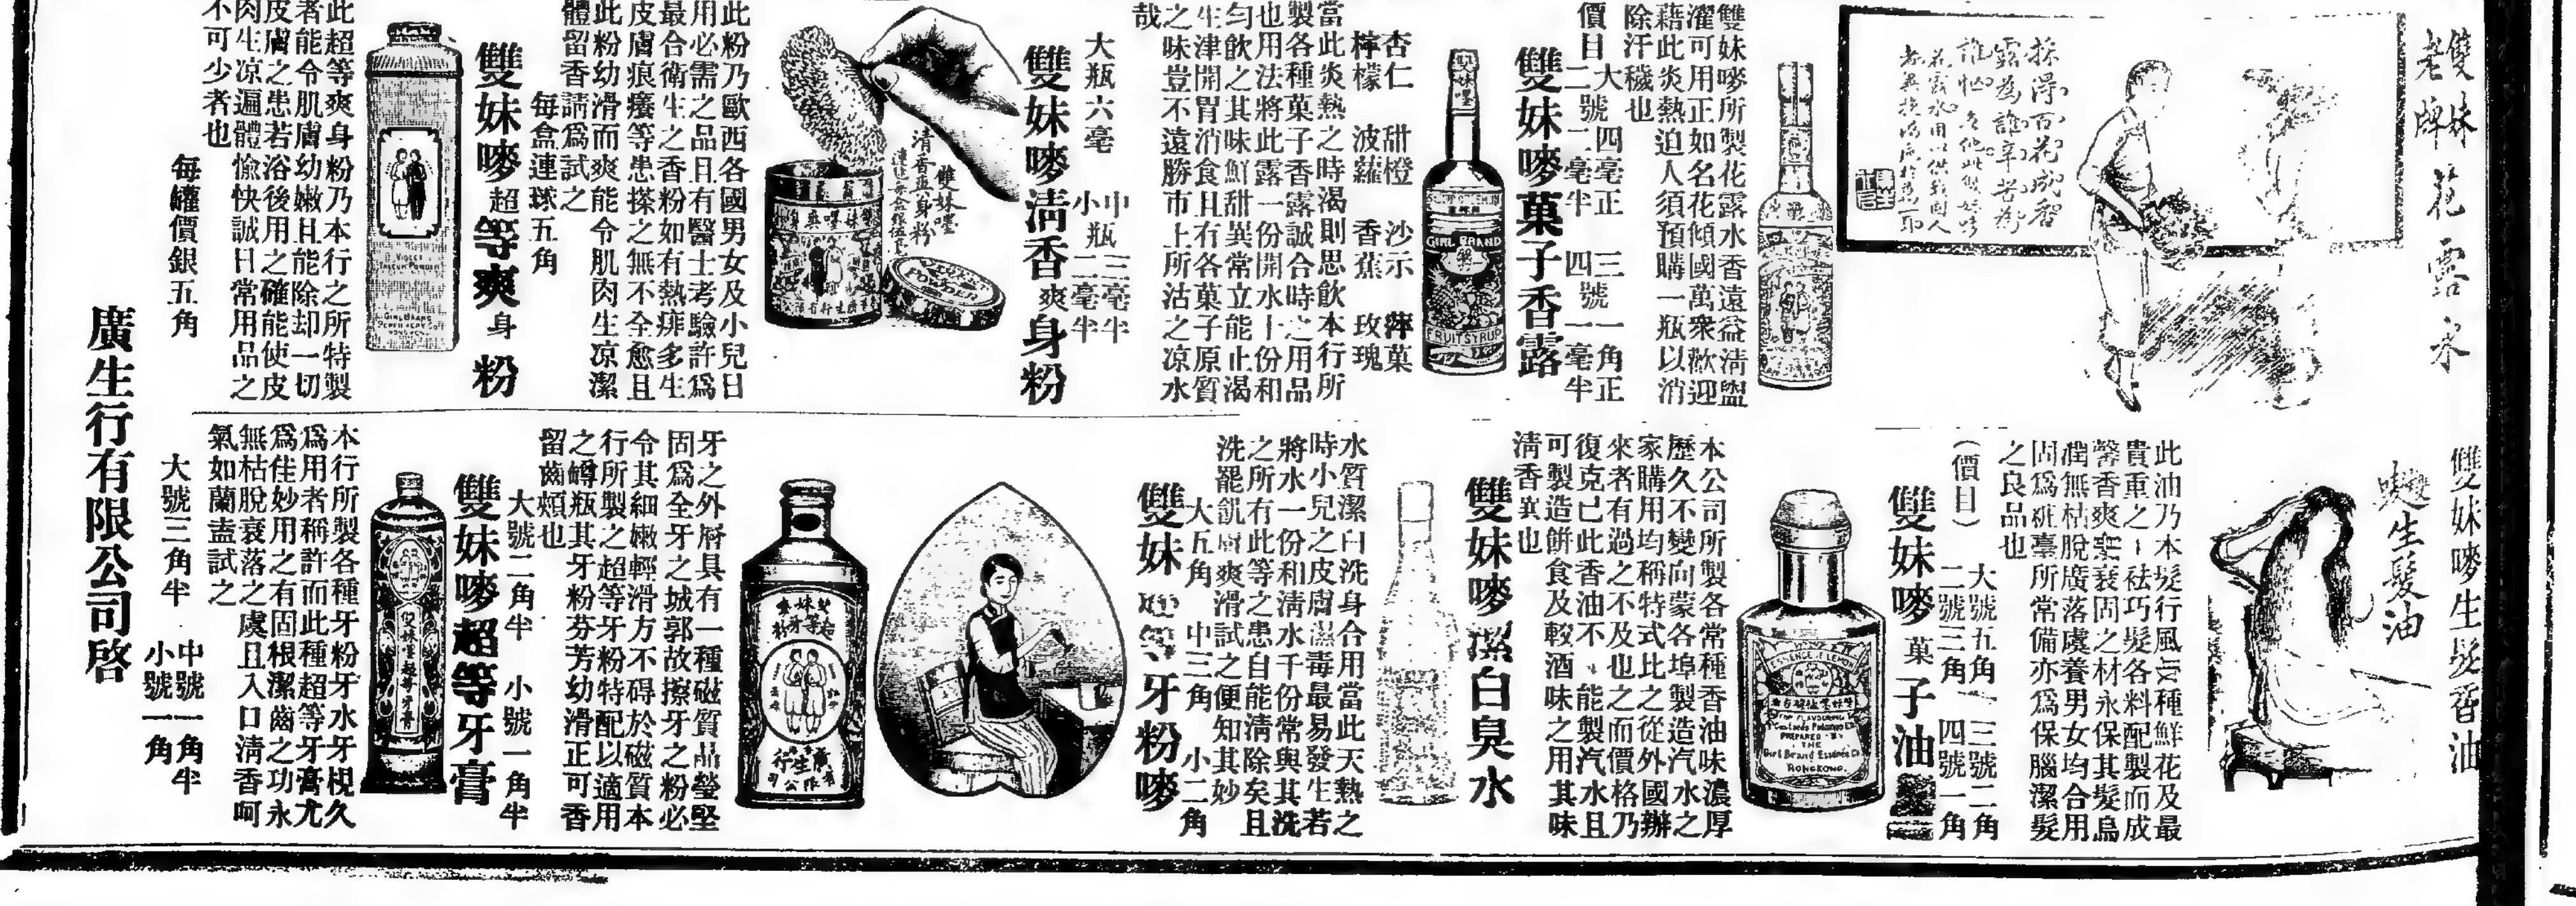 雙妹
老牌
花露水
採得百花成香
露為誰辛苦為
誰忙
花露水用以供我國人
雙妹嘜所製花露水香遠益清盥
濯可用正如名花傾國萬衆歡迎
藉此炎熱迫人須預購一瓶以消
除汗穢也
價目 大 四毫正 三號一角正
二號二毫半 四號一毫半
雙妹嘜菓子香露
GIRL BRAND
FRUIT SYRUP
杏仁 甜橙 沙示 萍菓
檸檬 波蘿 香蕉 玫瑰
當此炎熱之時渴則思飲本行所
製各種菓子香露誠合時之用品
也用法將此露一份開水十份和
勻飲之其味鮮甜異常立能止渴
生津開胃消食且有各菓子原質
之味豈不遠勝市上所沽之凉水
哉
大瓶六毫 中瓶三毫半
小瓶二毫半
雙妹嘜清香爽身粉
雙妹嘿
清香爽身粉
POWDER
此粉乃歐西各國男女及小兒日
用必需之品且有醫士考驗許爲
最合衛生之香粉如有熱痱多生
皮膚痕癢等患搽之無不全愈且
此粉幼滑而爽能令肌肉生凉潔
體留香請爲試之
每盒連球五角
雙妹嘜超等爽身粉
VIOLET
TALCUM POWDER
GIRL BRAND
此超等爽身粉乃本行之所特製
者能令肌膚幼嫩且能除却一切
皮膚之患若浴後用之確能使皮
肉生凉遍體愉快誠日常用品之
不可少者也
每罐價銀五角
雙妹嘜生髮香油
雙妹
生髮油
此油乃本髮行風行種鮮花及最
貴重之祛巧髮各料配製而成
馨香爽衰固之材永保其髮烏
潤無枯脫廣落虞養男女均合用
固爲粧臺所常備亦爲保腦潔髮
之良品也
（價目） 大號五角 三號二角
二號三角 四號一角
雙妹嘜菓子油
ESSENCE OF LEMON
FOR FLAVOURING
PREPARED BY
THE
Girl Brand Essence Co
HONGKONG.
本公司所製各常種香油味濃厚
歷久不變向蒙各埠製造汽水之
家購用均稱特式此之從外國辦
來者有過之不及也之而價格乃
復克已此香油不能製汽水且
可製造餅食及較酒味之用其味
清香異也
雙妹嘜潔白臭水
水質潔白洗身合用當此天熱之
時小兒之皮膚濕毒最易發生若
將水一份和清水千份常與其洗
之所有此等之患自能清除矣且
洗罷飢膚爽滑試之便知其妙
大五角 中三角 小二角
雙妹 等牙粉嘜
廣生行
有限公司
牙之外層具有一種磁質品瑩堅
固爲全牙之城郭故擦牙之粉必
令其細嫩輕滑方不碍於磁質本
行所製之超等牙粉特配以適用
之罇瓶其牙粉芬芳幼滑正可香
留齒頰也
大號二角半 小號一角半
雙妹嘜超等牙膏
雙妹嘿超等牙膏
本行所製各種牙粉牙水牙梘久
爲用者稱許而此種超等牙膏尤
爲佳妙用之有固根潔齒之功永
無枯脫衰落之虞且入口清香呵
氣如蘭盍試之
大號三角半 中號一角半
小號一角
廣生行有限公司啓